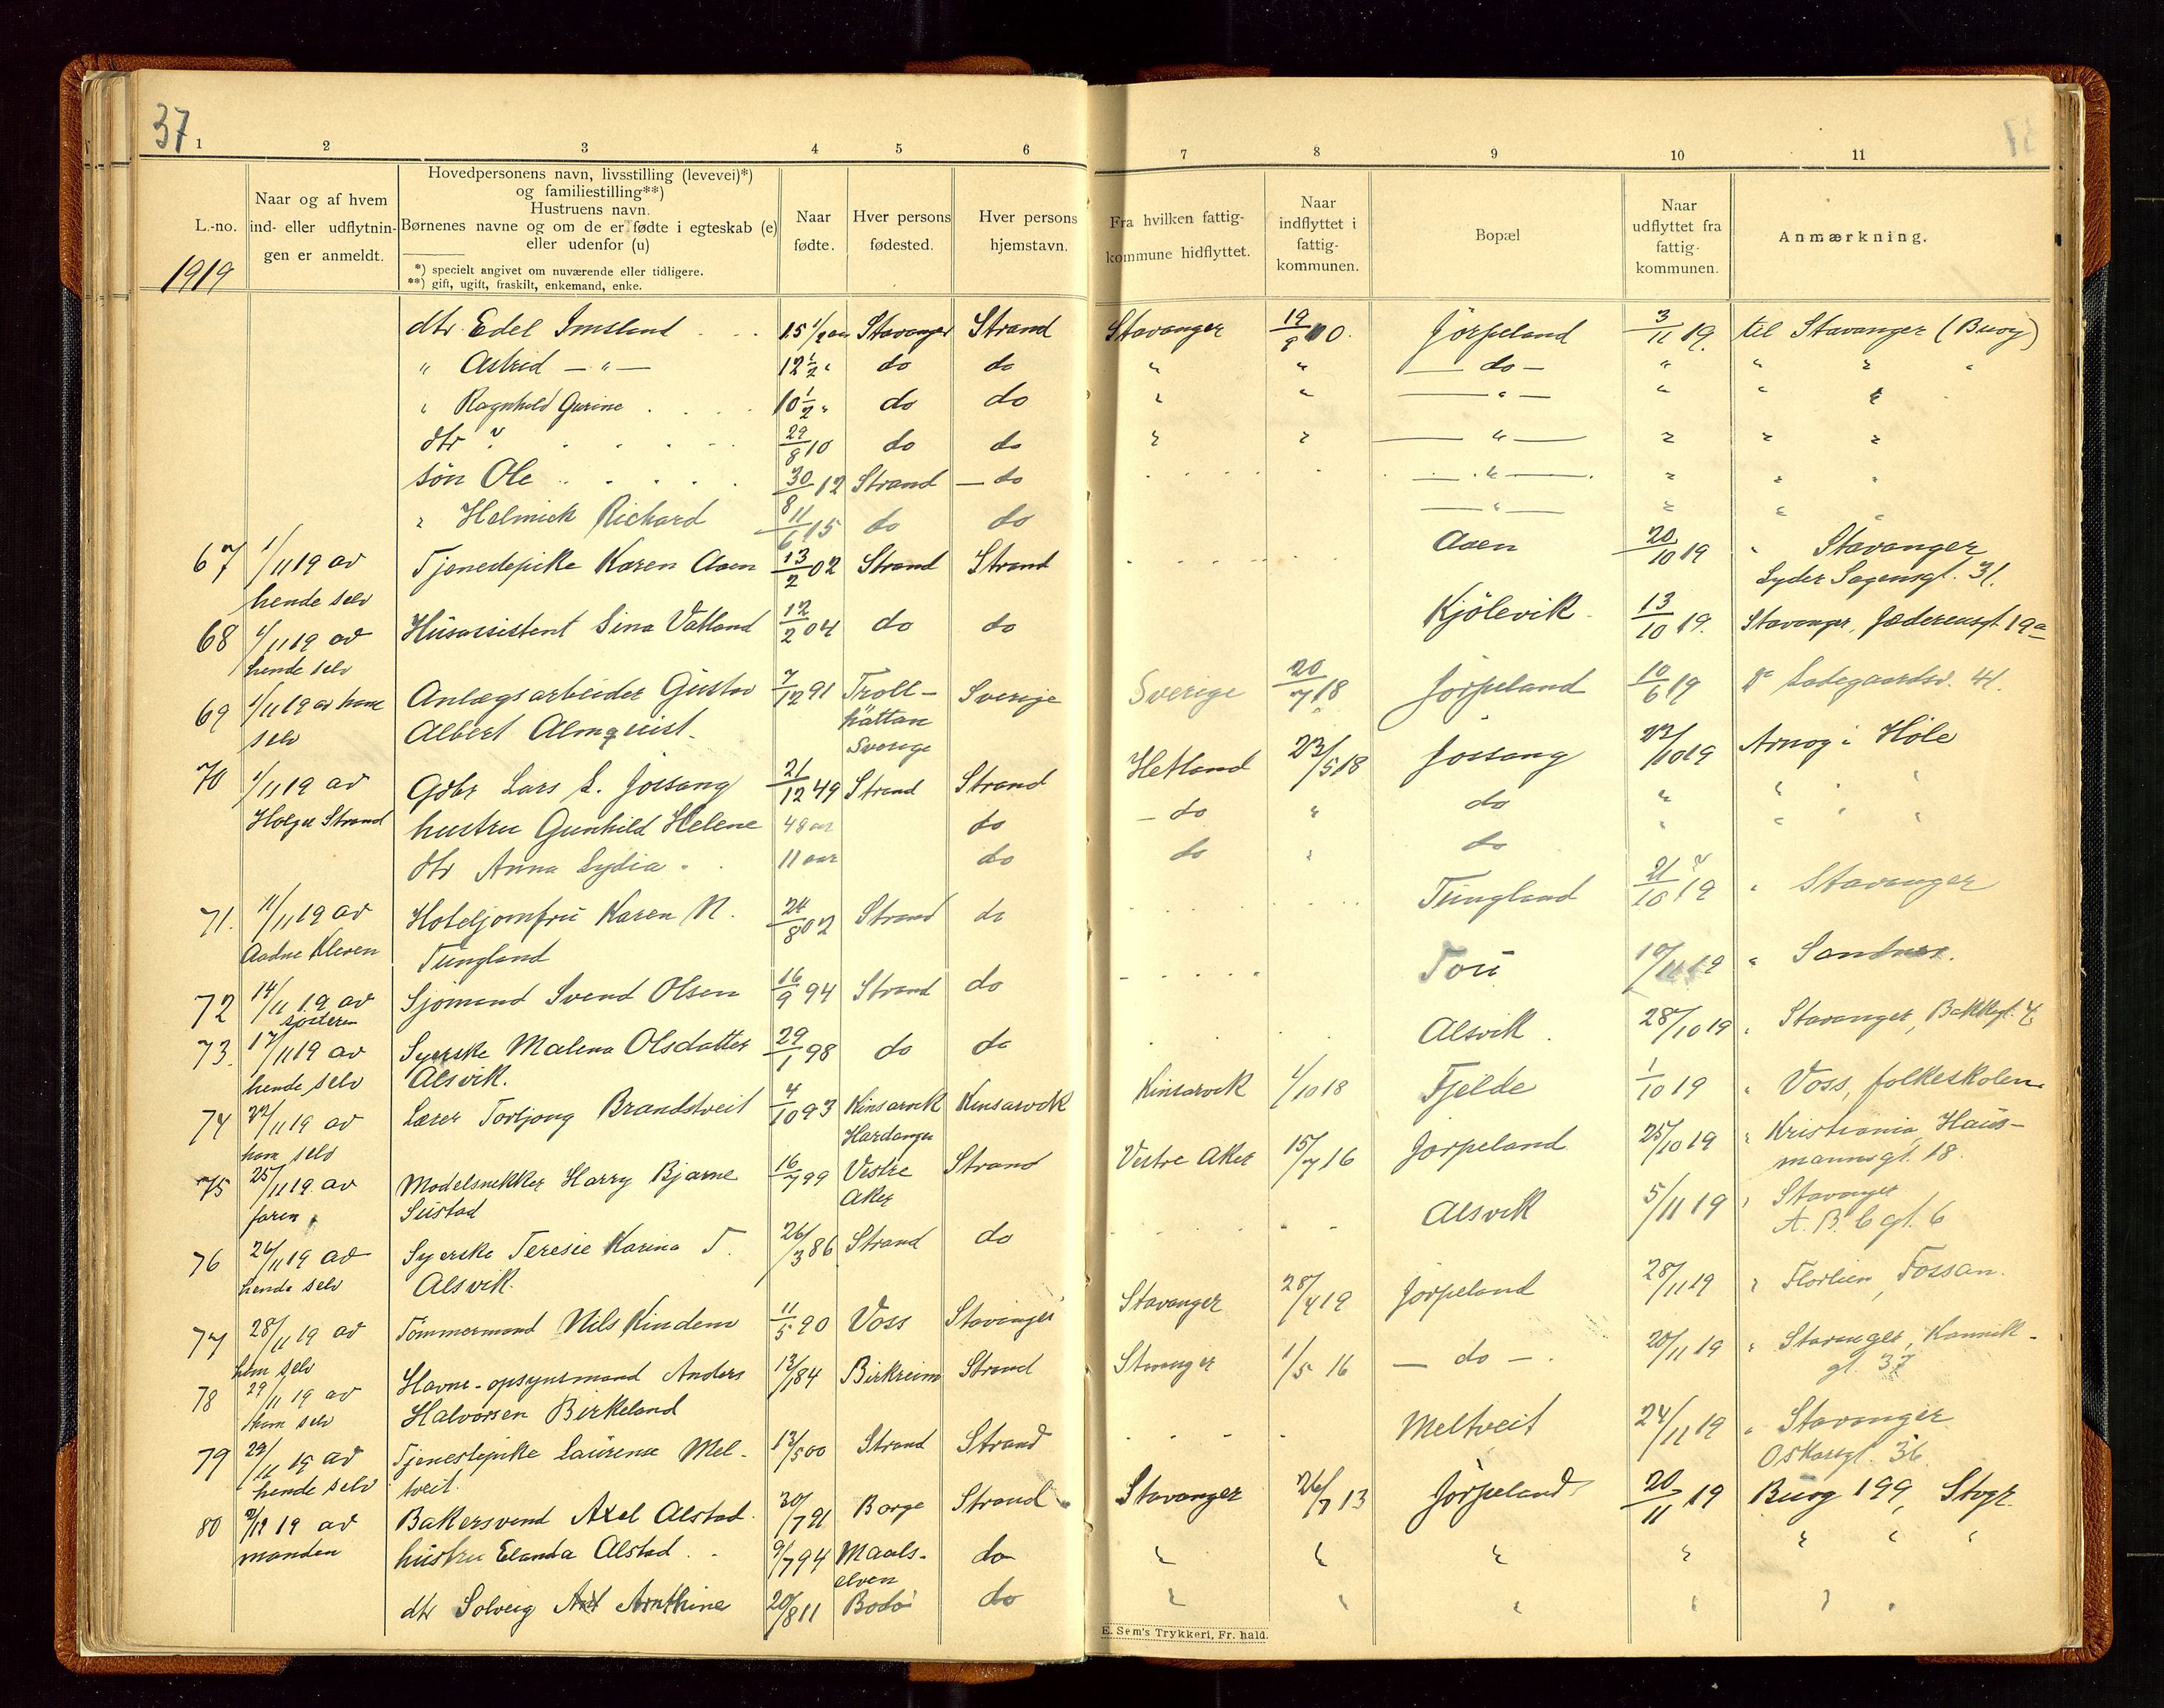 37
1 2 3 4 5 6 7 8 9 10 11
L.-no.
Naar og af hvem
ind- eller udflytnin-
gen er anmeldt.
Hovedpersonens navn, livsstilling (levevei)*)
og familiestilling**)
Hustruens navn.
Børnenes navne og om de er fødte i egteskab (e)
eller udenfor (u)
*) specielt angivet om nuværende eller tidligere.
**) gift, ugift, fraskilt, enkemand, enke.
Naar
fødte.
Hver persons
fødested.
Hver persons
hjemstavn.
Fra hvilken fattig-
kommune hidflyttet.
Naar
indflyttet i
fattig-
kommunen.
Bopæl
Naar
udflyttet fra
fattig-
kommunen.
Anmærkning.
1919
dtr. Edel Imsland 15 1/2 aar Stavanger Strand Stavanger 19/8 10. Jørpeland 3/11 19. til Stavanger (Buøy)
" Astrid — " — 12 1/2 " do do " " — do — " " " "
" Ragnhild Gurine 10 1/2 " do do " " — " — " " "
dtr ? 29/8 10 do do " " — " — " " "
søn Ole 30/8 12 Strand — do — " — " " "
" Helmick Richard 11/6 15 do do — " — " " "
67 1/11 19 av Tjenestepike Karen Aaen 13/2 02 Strand Strand Aaen 20/10 19 " Stavanger
hende selv Lyder Sagensgt. 31.
68 1/11 19 av Husassistent Sina Vatland 12/2 04 do do Kjølevik 13/10 19. Stavanger, Jæderensgt. 19a
hende selv
69 1/11 19 av ham Anlægsarbeider Gustav 7/12 91 Troll- Sverige Sverige 20/7 18 Jørpeland 10/6 19 do Ladegaardsv. 41.
selv Albert Almquist. hättan
Sverige
70 1/11 19 av Gdbr Lars L. Jøssang 21/12 49 Strand Strand Hetland 23/5 18 Jøssang 22/10 19 Arnøy i Høle
Holger Strand hustru Gunhild Helene 48 aar do — do " do " " " "
dtr Anna Lydia 11 aar do do " do " " " "
71. 11/11 19 av Hoteljomfru Karen N. 24/8 02 Strand do Tungland 21/10 19 " Stavanger
Aadne Kleven Tungland
72 14/11 19 av Sjømand Svend Olsen 16/9 94 Strand do Tou 10/11 19 " Sandnes.
søsteren
73. 17/11 19 av Syerske Malena Olsdatter 29/1 98 do do Alsvik 28/10 19 " Stavanger, Bakkegt. 4
hende selv Alsvik.
74 22/11 19 av Lærer Torbjørg Brandstveit 4/10 93 Kinsarvik Kinsarvik Kinsarvik 1/10 18 Fjelde 1/10 19 " Voss, folkeskolen
ham selv Hardanger
75 25/11 19 av Modelsnekker Harry Bjarne 16/7 99 Vestre Strand Vestre Aker 15/7 16 Jørpeland 25/10 19 " Kristiania, Haus-
faren Seistad Aker mannsgt. 18.
76 26/11 19 av Syerske Teresie Karina T. 26/3 86 Strand do Alsvik 5/11 19 " Stavanger
hende selv Alsvik. A.B.C gt. 6
77 28/11 19 av Tømmermand Nils Kindem 11/5 90 Voss Stavanger Stavanger 28/4 19 Jørpeland 28/11 19 " Florlien, Fossan.
ham selv
78 29/11 19 av Havne-opsynsmand Anders 13/1 84 Birkreim Strand Stavanger 1/5 16 — do — 20/11 19 " Stavanger, Kannik-
ham selv Halvorsen Birkeland gt. 37
79 29/11 19 av Tjenestepike Laurense Mel- 13/5 00 Strand Strand Meltveit 24/11 19 " Stavanger
hende selv tveit. Oskarsgt. 36
80 2/12 19 av Bakersvend Axel Alstad 30/7 91 Borge Strand Stavanger 26/7 13 Jørpeland 20/11 19 Buøy 199, Stvgr.
manden hustru Elanda Alstad 9/7 94 Maals- do " " " " " " "
elven
dtr Solveig Arnthine 20/8 11 Bodø do " " " " " "
E. Sem's Trykkeri, Fr. hald.